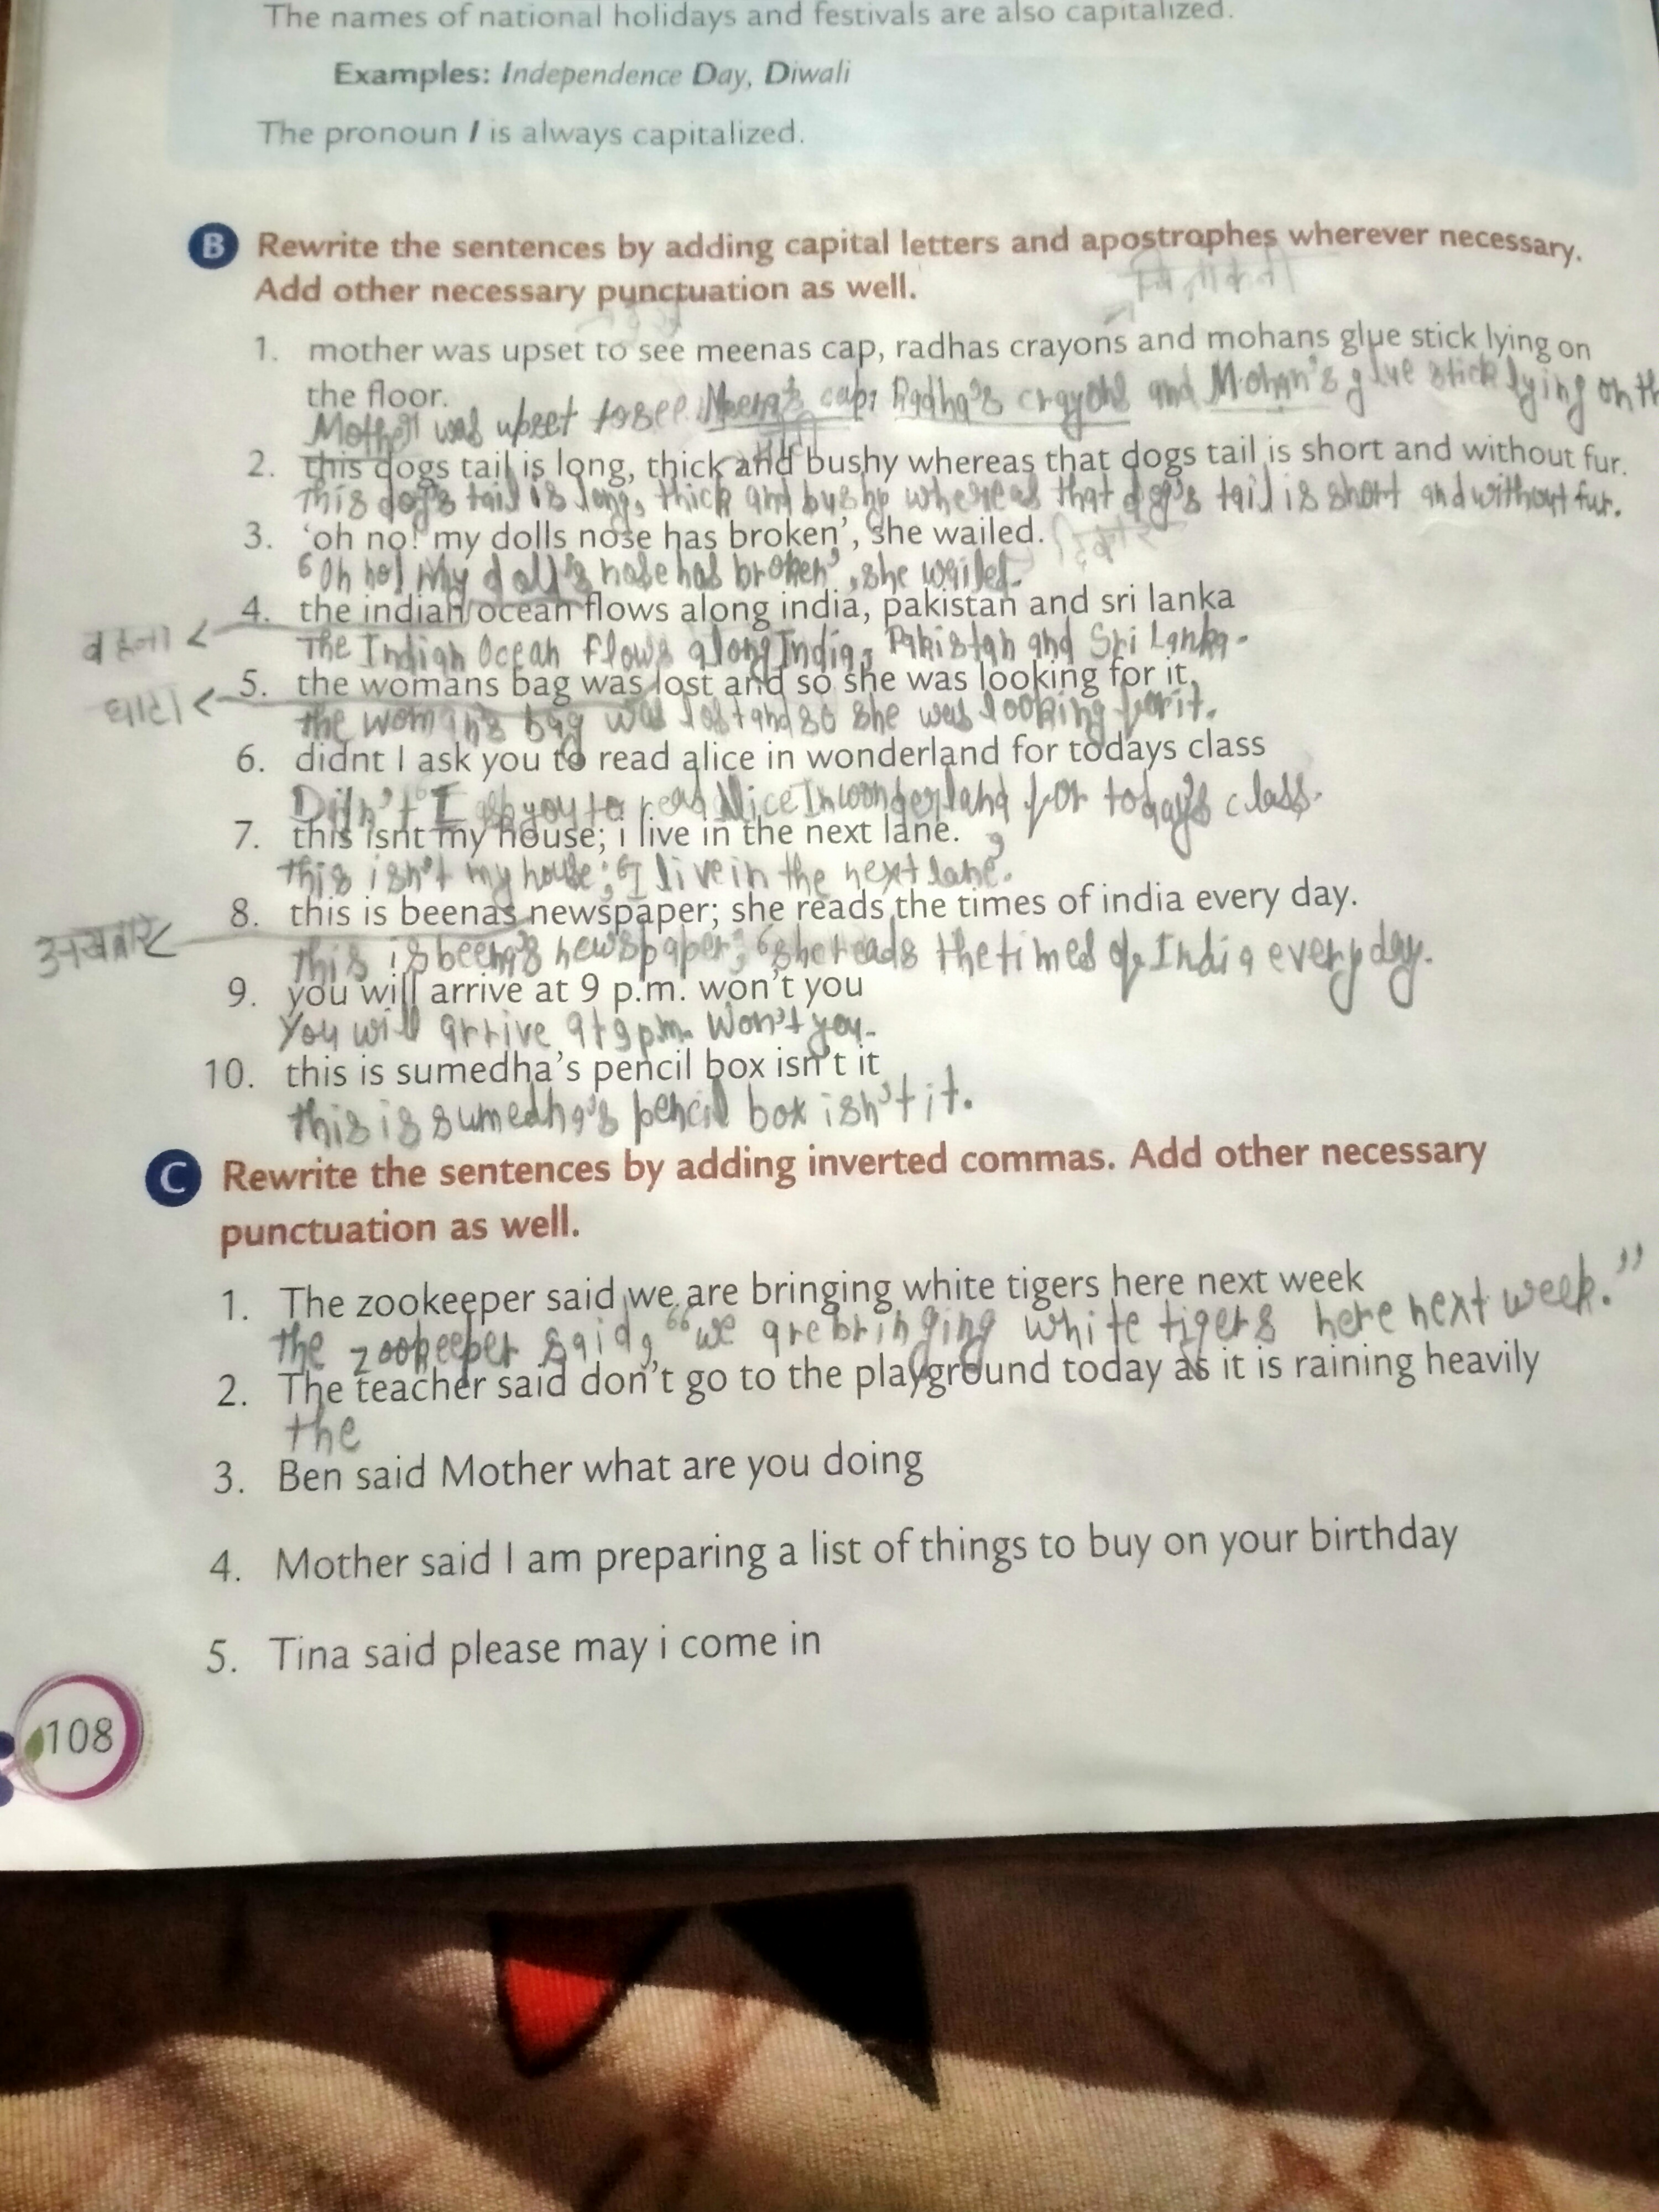 The names of national holidays and festivals are also capitalized.
Examples: Independence Day, Diwali
The pronoun I is always capitalized.
B Rewrite the sentences by adding capital letters and apostrophes wherever necessary.
Add other necessary punctuation as well.
1. mother was upset to see meenas cap, radhas crayons and mohans glue stick lying on
the floor.
Mother was upset to see Meena's cap, Radha's crayons and Mohan's glue stick lying on th
2. this dogs tail is long, thick and bushy whereas that dogs tail is short and without fur.
This dog's tail is long, thick and bushy whereas that dog's tail is short and without fur.
3. ‘oh no! my dolls nose has broken’, she wailed.
‘Oh no! My doll's nose has broken’, she wailed.
4. the indian ocean flows along india, pakistan and sri lanka
बहना <
The Indian Ocean flows along India, Pakistan and Sri Lanka.
5. the womans bag was lost and so she was looking for it.
घाटा <
the woman's bag was lost and so she was looking for it.
6. didnt I ask you to read alice in wonderland for todays class
Didn't I ask you to read Alice In wonderland for today's class.
7. this isnt my house; i live in the next lane.
this isn't my house; I live in the next lane.
8. this is beenas newspaper; she reads the times of india every day.
अखबार
this is beena's newspaper; she reads the times of India every day.
9. you will arrive at 9 p.m. won’t you
You will arrive at 9 p.m. Won't you.
10. this is sumedha’s pencil box isn’t it
this is sumedha's pencil box isn't it.
C Rewrite the sentences by adding inverted commas. Add other necessary
punctuation as well.
1. The zookeeper said we are bringing white tigers here next week
the zookeeper said, “we are bringing white tigers here next week.”
2. The teacher said don’t go to the playground today as it is raining heavily
the
3. Ben said Mother what are you doing
4. Mother said I am preparing a list of things to buy on your birthday
5. Tina said please may i come in
108